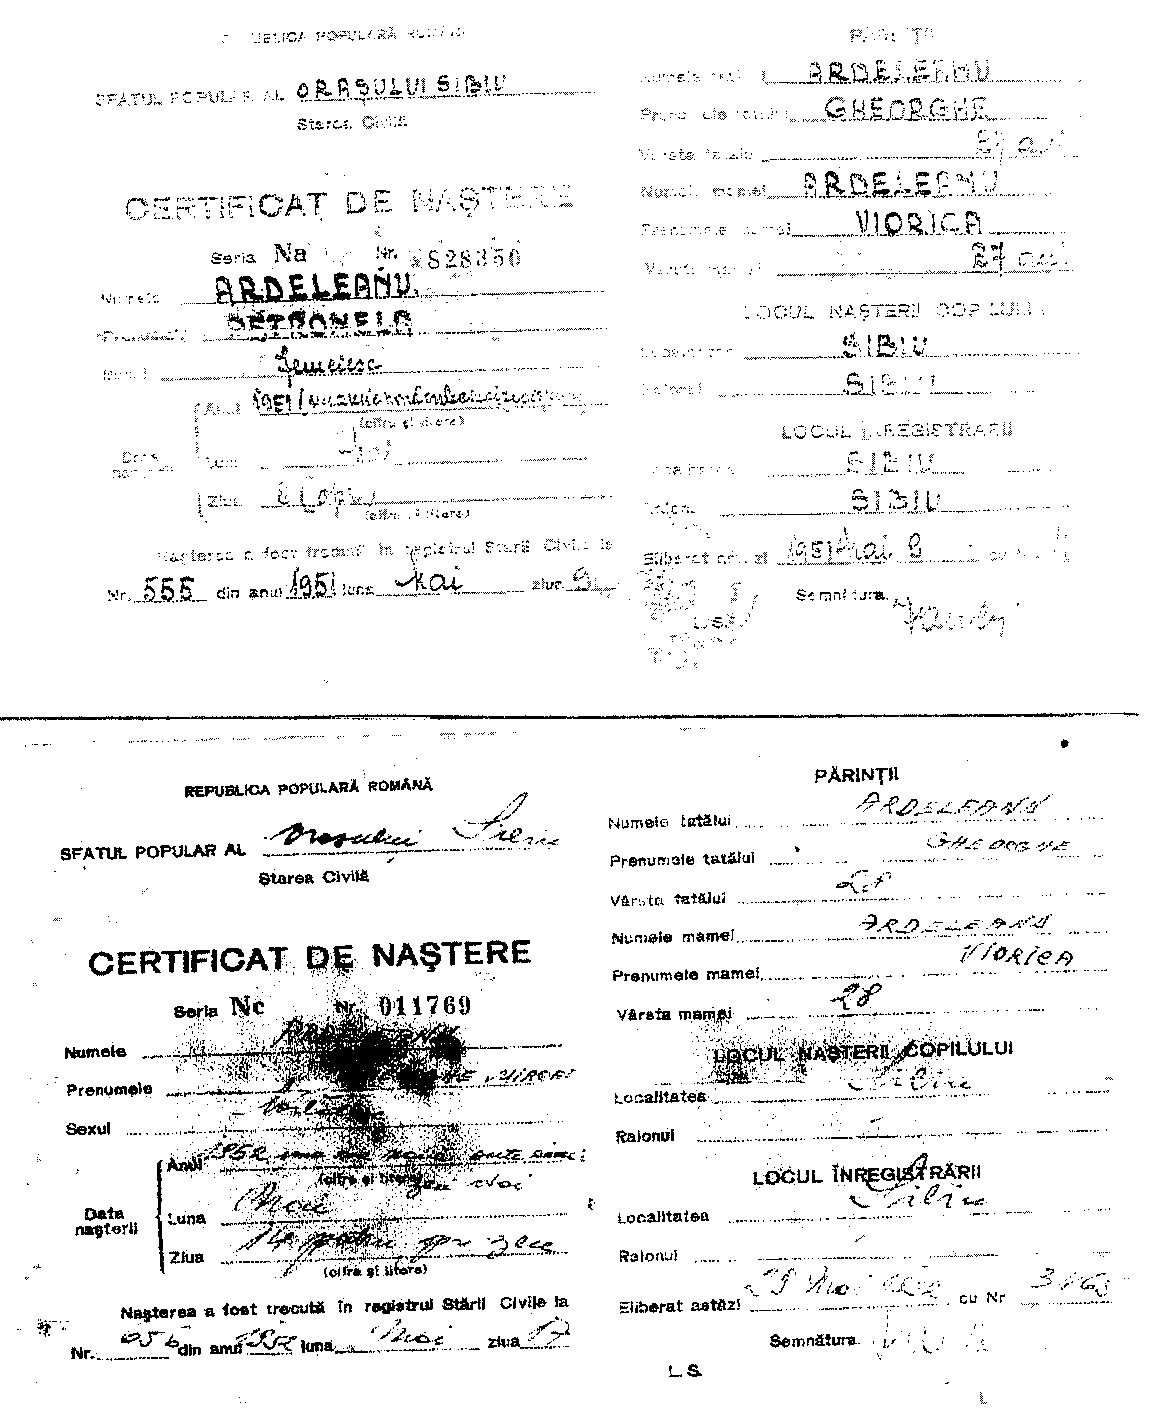 REPUBLICA POPULARĂ ROMÂNĂ
SFATUL POPULAR AL ORAȘULUI SIBIU
Starea Civilă
CERTIFICAT DE NAȘTERE
Seria Na Nr. 828350
Numele ARDELEANU
Prenumele PETRONELA
Sexul femeiesc
Anul 1951
(cifre și litere)
Data nașterii
Luna
Ziua 8 (opt)
(cifre și litere)
Nașterea a fost trecută în registrul Stării Civile la
Nr. 555 din anul 1951 luna Mai ziua 9
PĂRINȚII
Numele tatălui ARDELEANU
Prenumele tatălui GHEORGHE
Vârsta tatălui 27 ani
Numele mamei ARDELEANU
Prenumele mamei VIORICA
Vârsta mamei 27 ani
LOCUL NAȘTERII COPILULUI
Localitatea SIBIU
Raionul SIBIU
LOCUL ÎNREGISTRĂRII
Localitatea SIBIU
Raionul SIBIU
Eliberat astăzi 1951 Mai 9 cu Nr.
Semnătura
REPUBLICA POPULARĂ ROMÂNĂ
SFATUL POPULAR AL Orașului Sibiu
Starea Civilă
CERTIFICAT DE NAȘTERE
Seria Nc Nr. 011769
Numele ARDELEANU
Prenumele MIRCEA
Sexul
Anul 1952 una mie nouă sute cinci
(cifre și litere) zeci doi
Data nașterii
Luna Mai
Ziua
(cifre și litere)
Nașterea a fost trecută în registrul Stării Civile la
Nr. 956 din anul 1952 luna Mai ziua 17
PĂRINȚII
Numele tatălui ARDELEANU
Prenumele tatălui GHEORGHE
Vârsta tatălui 28
Numele mamei ARDELEANU
Prenumele mamei VIORICA
Vârsta mamei 28
LOCUL NAȘTERII COPILULUI
Localitatea Sibiu
Raionul
LOCUL ÎNREGISTRĂRII
Localitatea Sibiu
Raionul
Eliberat astăzi Mai cu Nr
Semnătura
L.S.